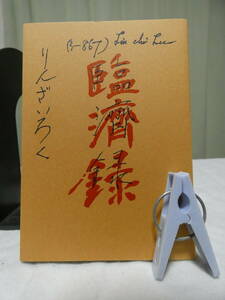 (?-867) Lin chi Lu
臨濟録
りんざいろく